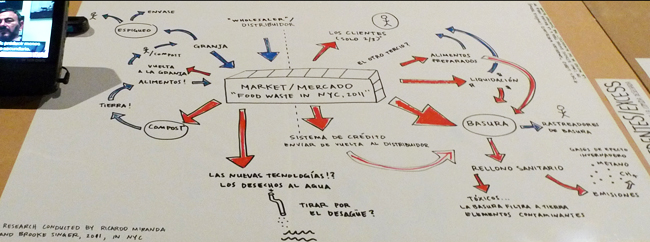 ENVASE
ESPIGUEO
GRANJA
/COMPOST
VUELTA
A LA GRANJA
ALIMENTOS!
TIERRA!
COMPOST
"WHOLESALER"/
DISTRIBUIDOR
LOS CLIENTES
(SOLO 2/3)
EL OTRO TERCIO?
MARKET/MERCADO
"FOOD WASTE IN NYC, 2011"
ALIMENTOS
PREPARADOS
LIQUIDACIÓN
BASURA
RASTREADORES
DE BASURA
SISTEMA DE CRÉDITO
ENVIAR DE VUELTA AL DISTRIBUIDOR
LAS NUEVAS TECNOLOGÍAS!?
LOS DESECHOS AL AGUA
TIRAR POR
EL DESAGÜE?
RELLENO SANITARIO
GASES DE EFECTO
INVERNADERO
METANO
CH4
EMISIONES
TÓXICOS...
LA BASURA FILTRA A TIERRA
ELEMENTOS CONTAMINANTES
RESEARCH CONDUCTED BY RICARDO MIRANDA
AND BROOKE SINGER, 2011, IN NYC